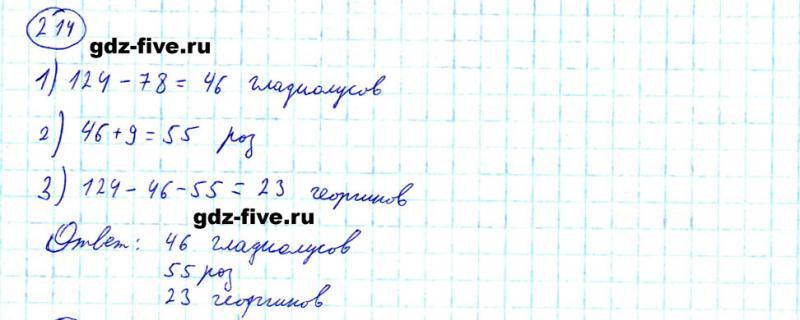 214
gdz-five.ru
1) 124 - 78 = 46 гладиолусов
2) 46 + 9 = 55 роз
3) 124 - 46 - 55 = 23 георгинов
gdz-five.ru
Ответ: 46 гладиолусов
55 роз
23 георгинов